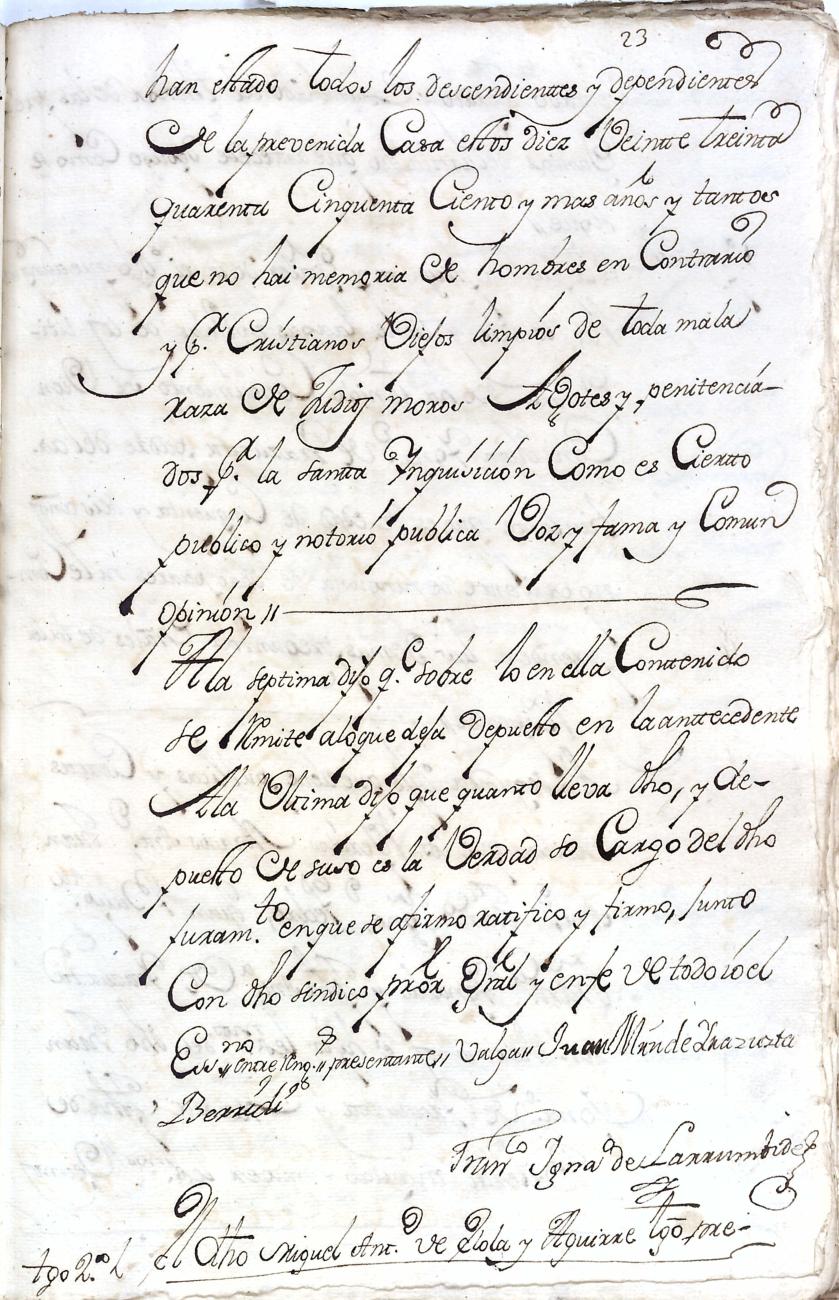 23
han estado todos los descendientes y dependientes
de la prevenida Casa estos diez Veintte treinta
quarenta Cinquenta Ciento y mas años y tantos
que no hai memoria de hombres en Contrario
y p.r Cristianos Viejos limpios de toda mala
raza de Judios moros Agotes y penitencia-
dos p.r la santta Ynquisición Como es Ciertto
publico y notorio publica Voz y fama y Comun
Opinión //
A la septima dijo q.e sobre lo en ella Conttenido
se Rmite a lo que deja depuesto en la anttecedente
A la Ultima dijo que quanto lleva dho, y de-
puesto de suso es la Verdad so Cargo del dho
juram.to en que se afirmo ratifico y firmo, junto
Con dho sindico pror Gral y en fe de todo io el
Ess.no entre Reng.s presentante Valga Juan Mrn de Yrazuzta
Berridi
Fran.co Igna.o de Larrumbide
tgo 2.o El dho Miguel Ant.o de Olola y Aguirre tgo pre-